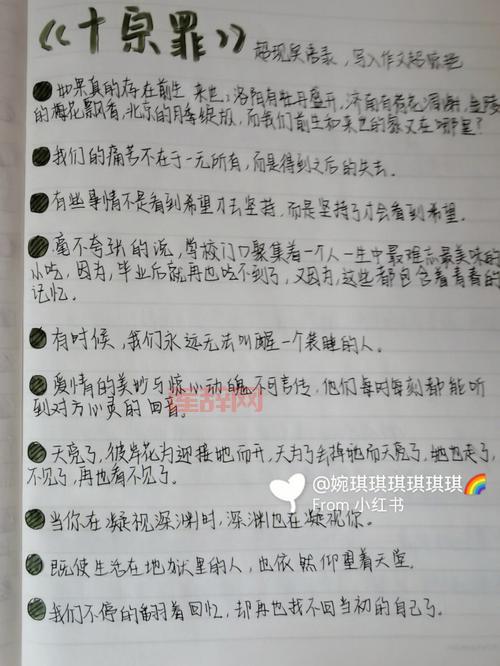 《十宗罪》 超现实语录，写入作文超惊艳
如果真的存在前生 来世，洛阳有牡丹盛开，济南有荷花凋谢，金陵
的梅花飘香，北京的月季绽放，而我们前生和来世的家又在哪里？
我们的痛苦不在于一无所有，而是得到之后的失去。
有些事情不是看到希望才去坚持，而是坚持了才会看到希望。
毫不夸张的说，学校门口聚集着一个人一生中最难忘最美味的
小吃，因为，毕业后就再也吃不到了，又因为，这些都包含着青春的
记忆。
有时候，我们永远无法叫醒一个装睡的人。
爱情的美妙与惊心动魄不可言传，他们每时每刻都能听
到对方心灵的回音。
星辞网
天亮了，彼岸花为迎接她而开，天为了丢掉她而天亮了，她也走了，
不见了，再也看不见了。
@婉琪琪琪琪琪琪琪🌈
From 小红书
当你在凝视深渊时，深渊也在凝视你。
既使生活在地狱里的人，也依然仰望着天堂。
我们不停的翻着回忆，却再也找不回当初的自己了。